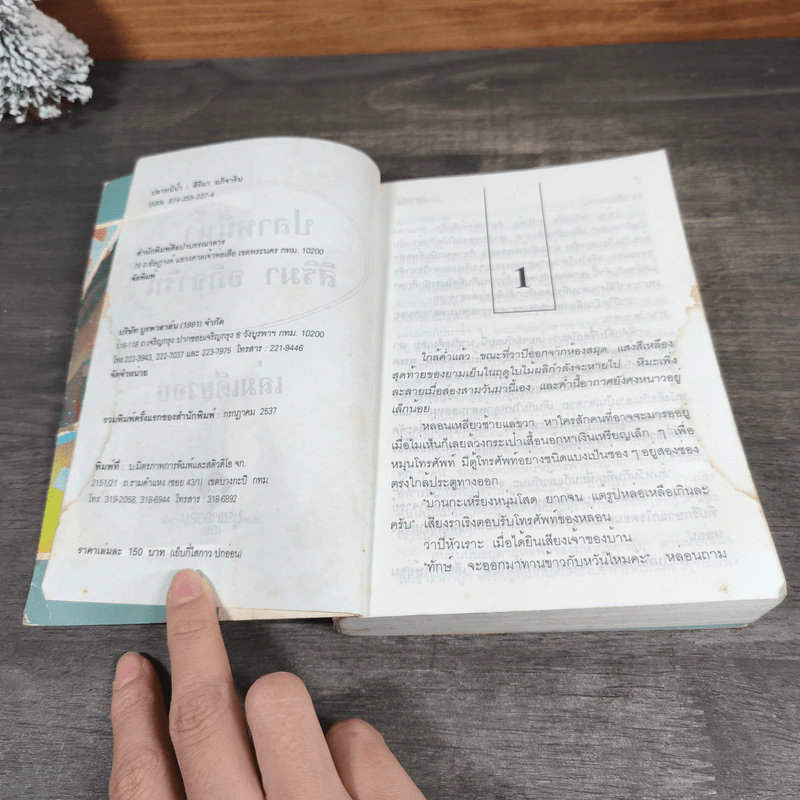 ปลาหนีน้ำ : สิริมา อภิจาริน
ISBN 974-255-227-4
สำนักพิมพ์ศิลปาบรรณาคาร
76 ถ.อัษฎางค์ แขวงศาลเจ้าพ่อเสือ เขตพระนคร กทม. 10200
จัดพิมพ์
บริษัท บูรพาสาส์น (1991) จำกัด
116-118 ถ.เจริญกรุง ปากซอยเจริญกรุง 6 วังบูรพาฯ กทม. 10200
โทร.222-3943, 222-7037 และ 223-7975 โทรสาร : 221-9446
จัดจำหน่าย
รวมพิมพ์ครั้งแรกของสำนักพิมพ์ : กรกฎาคม 2537
พิมพ์ที่ : บ.มิตรภาพการพิมพ์และสติวดิโอ จก.
2151/21 ถ.รามคำแหง (ซอย 43/1) เขตบางกะปิ กทม.
โทร. 319-2058, 318-6944 โทรสาร : 318-6892
ราคาเล่มละ 150 บาท (เย็บกี่ไสกาว ปกอ่อน)
1
ใกล้ค่ำแล้ว ขณะที่วาปีออกจากห้องสมุด แสงสีเหลือง
สุดท้ายของยามเย็นในฤดูใบไม้ผลิกำลังจะหายไป หิมะเพิ่ง
ละลายเมื่อสองสามวันมานี้เอง และค่ำนี้อากาศยังคงหนาวอยู่
เล็กน้อย
หล่อนเหลียวซ้ายแลขวา หาใครสักคนที่อาจจะมารออยู่
เมื่อไม่เห็นก็เลยล้วงกระเป๋าเสื้อนอกหาเงินเหรียญเล็ก ๆ เพื่อ
หมุนโทรศัพท์ มีตู้โทรศัพท์อย่างชนิดแบ่งเป็นซอง ๆ อยู่สองซอง
ตรงใกล้ประตูทางออก
"บ้านกะเหรี่ยงหนุ่มโสด ยากจน แต่รูปหล่อเหลือเกินละ
ครับ" เสียงร่าเริงตอบรับโทรศัพท์ของหล่อน
วาปีหัวเราะ เมื่อได้ยินเสียงเจ้าของบ้าน
"ทักษ์ จะออกมาทานข้าวกับหวันไหมคะ" หล่อนถาม